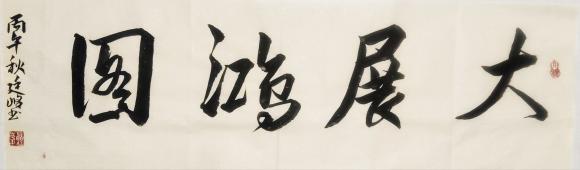 大展鴻图
丙午秋廷峰书